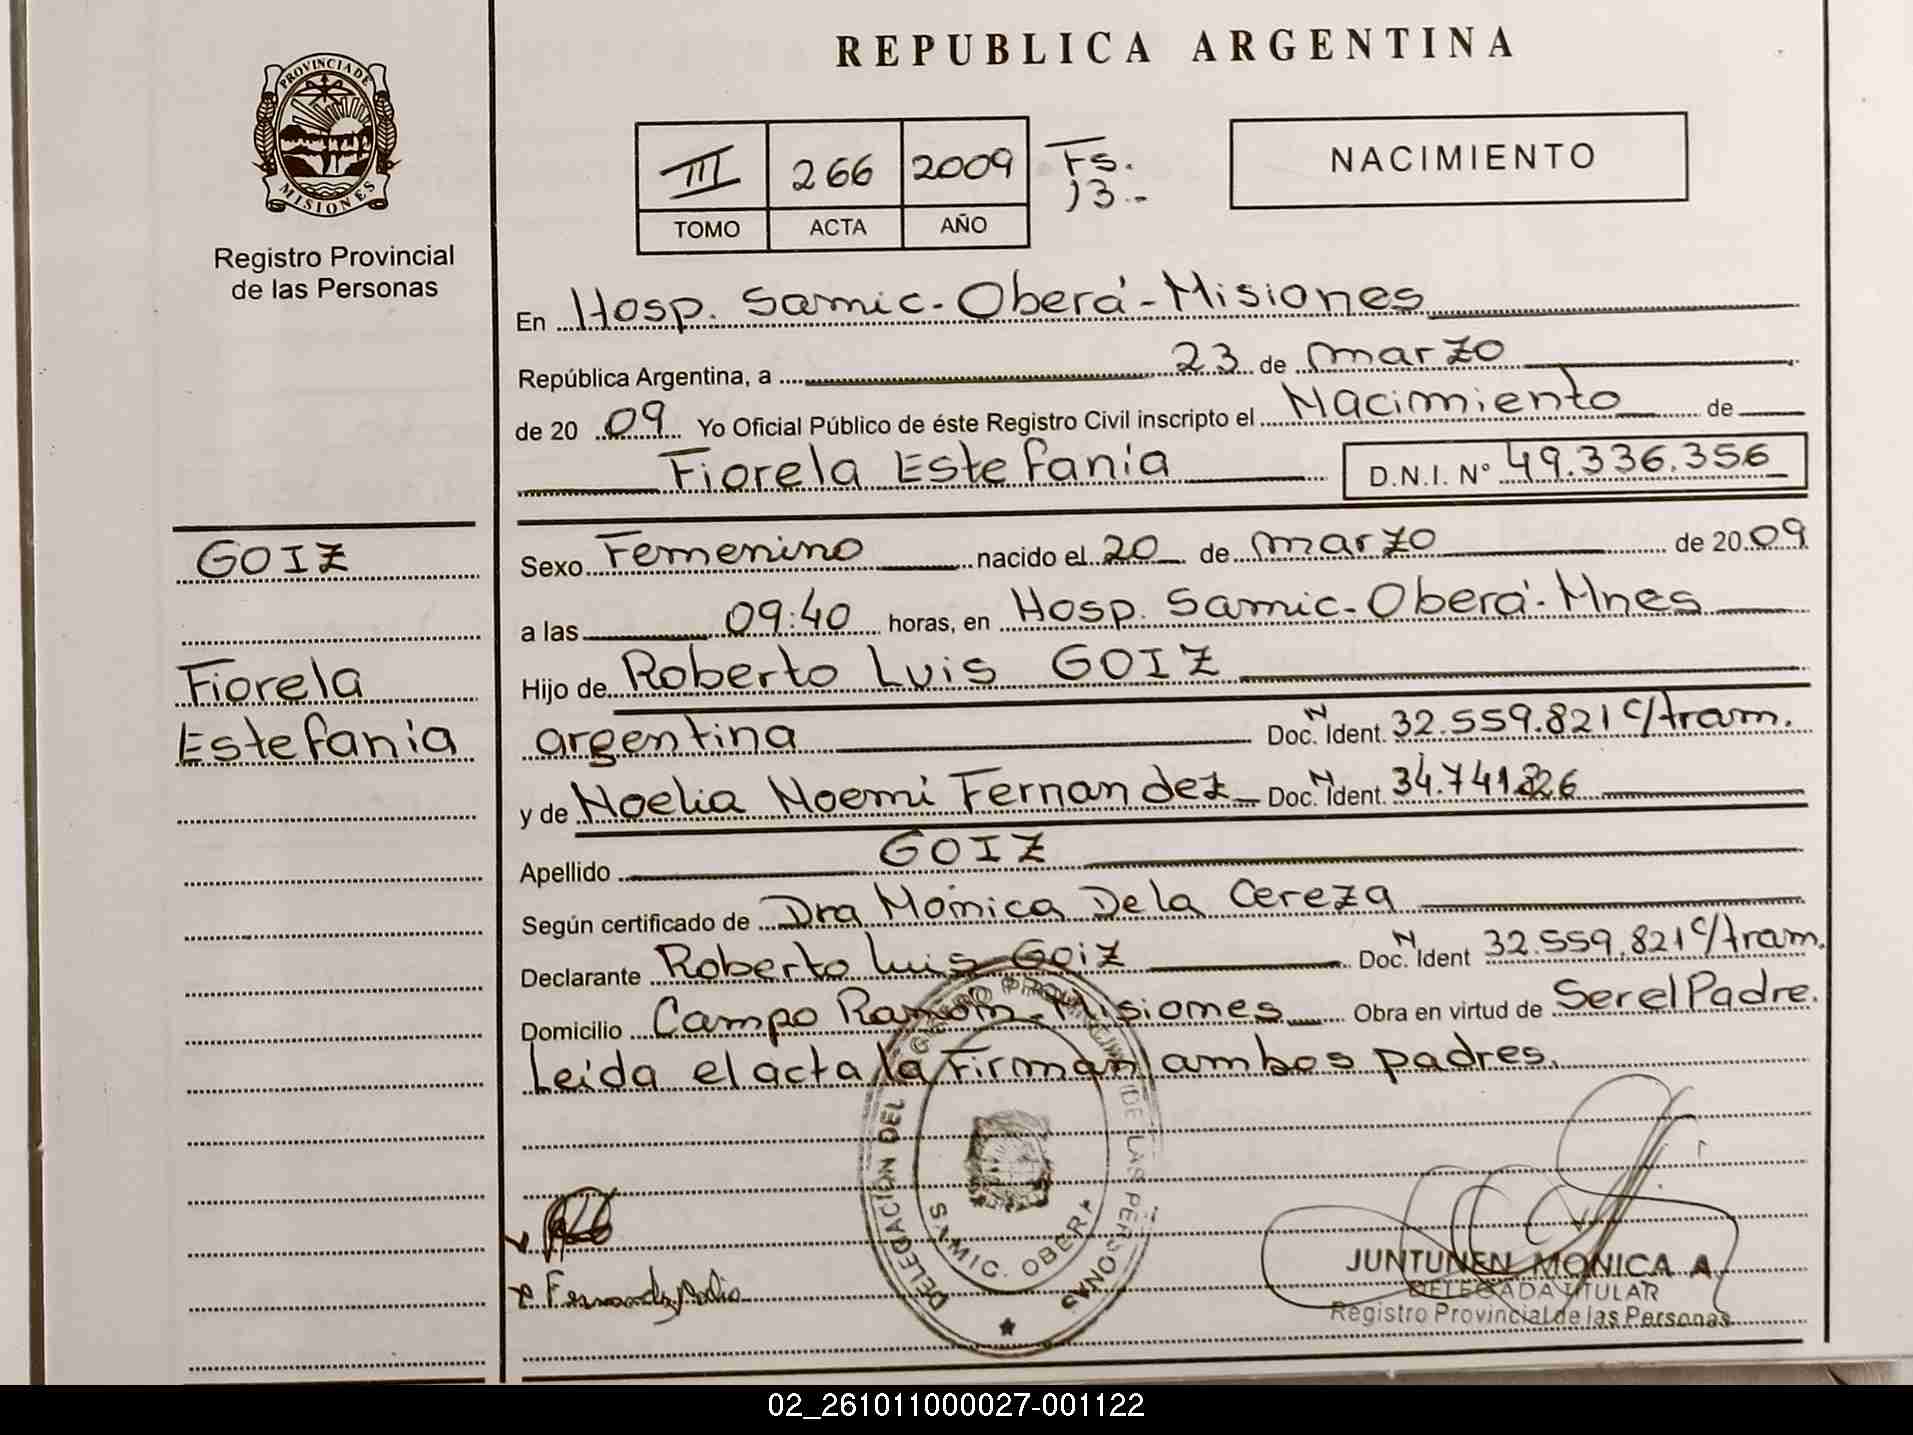 REPUBLICA ARGENTINA
PROVINCIA DE
MISIONES
Registro Provincial
de las Personas
III 266 2009 Fs.
13.-
TOMO ACTA AÑO
NACIMIENTO
En Hosp. Samic-Oberá-Misiones
República Argentina, a 23 de marzo
de 2009 Yo Oficial Público de éste Registro Civil inscripto el Nacimiento de
Fiorela Estefanía D.N.I. Nº 49.336.356
GOIZ
Fiorela
Estefanía
Sexo Femenino nacido el 20 de marzo de 2009
a las 09:40 horas, en Hosp. Samic-Oberá-Mnes
Hijo de Roberto Luis GOIZ
argentina Doc. N Ident. 32.559.821 c/tram.
y de Noelia Noemi Fernandez Doc. N Ident. 34.741.
Apellido GOIZ
Según certificado de Dra Mónica De la Cereza
Declarante Roberto Luis Goiz Doc. N Ident 32.559.821 c/tram.
Domicilio Campo Ramón-Misiones Obra en virtud de Ser el Padre.
Leida el acta la Firman ambos padres.
DELEGACIÓN DEL REGISTRO PROVINCIAL DE LAS PERSONAS
SAMIC. OBERA
JUNTUNEN MONICA A
DELEGADA TITULAR
Registro Provincial de las Personas
02_261011000027-001122